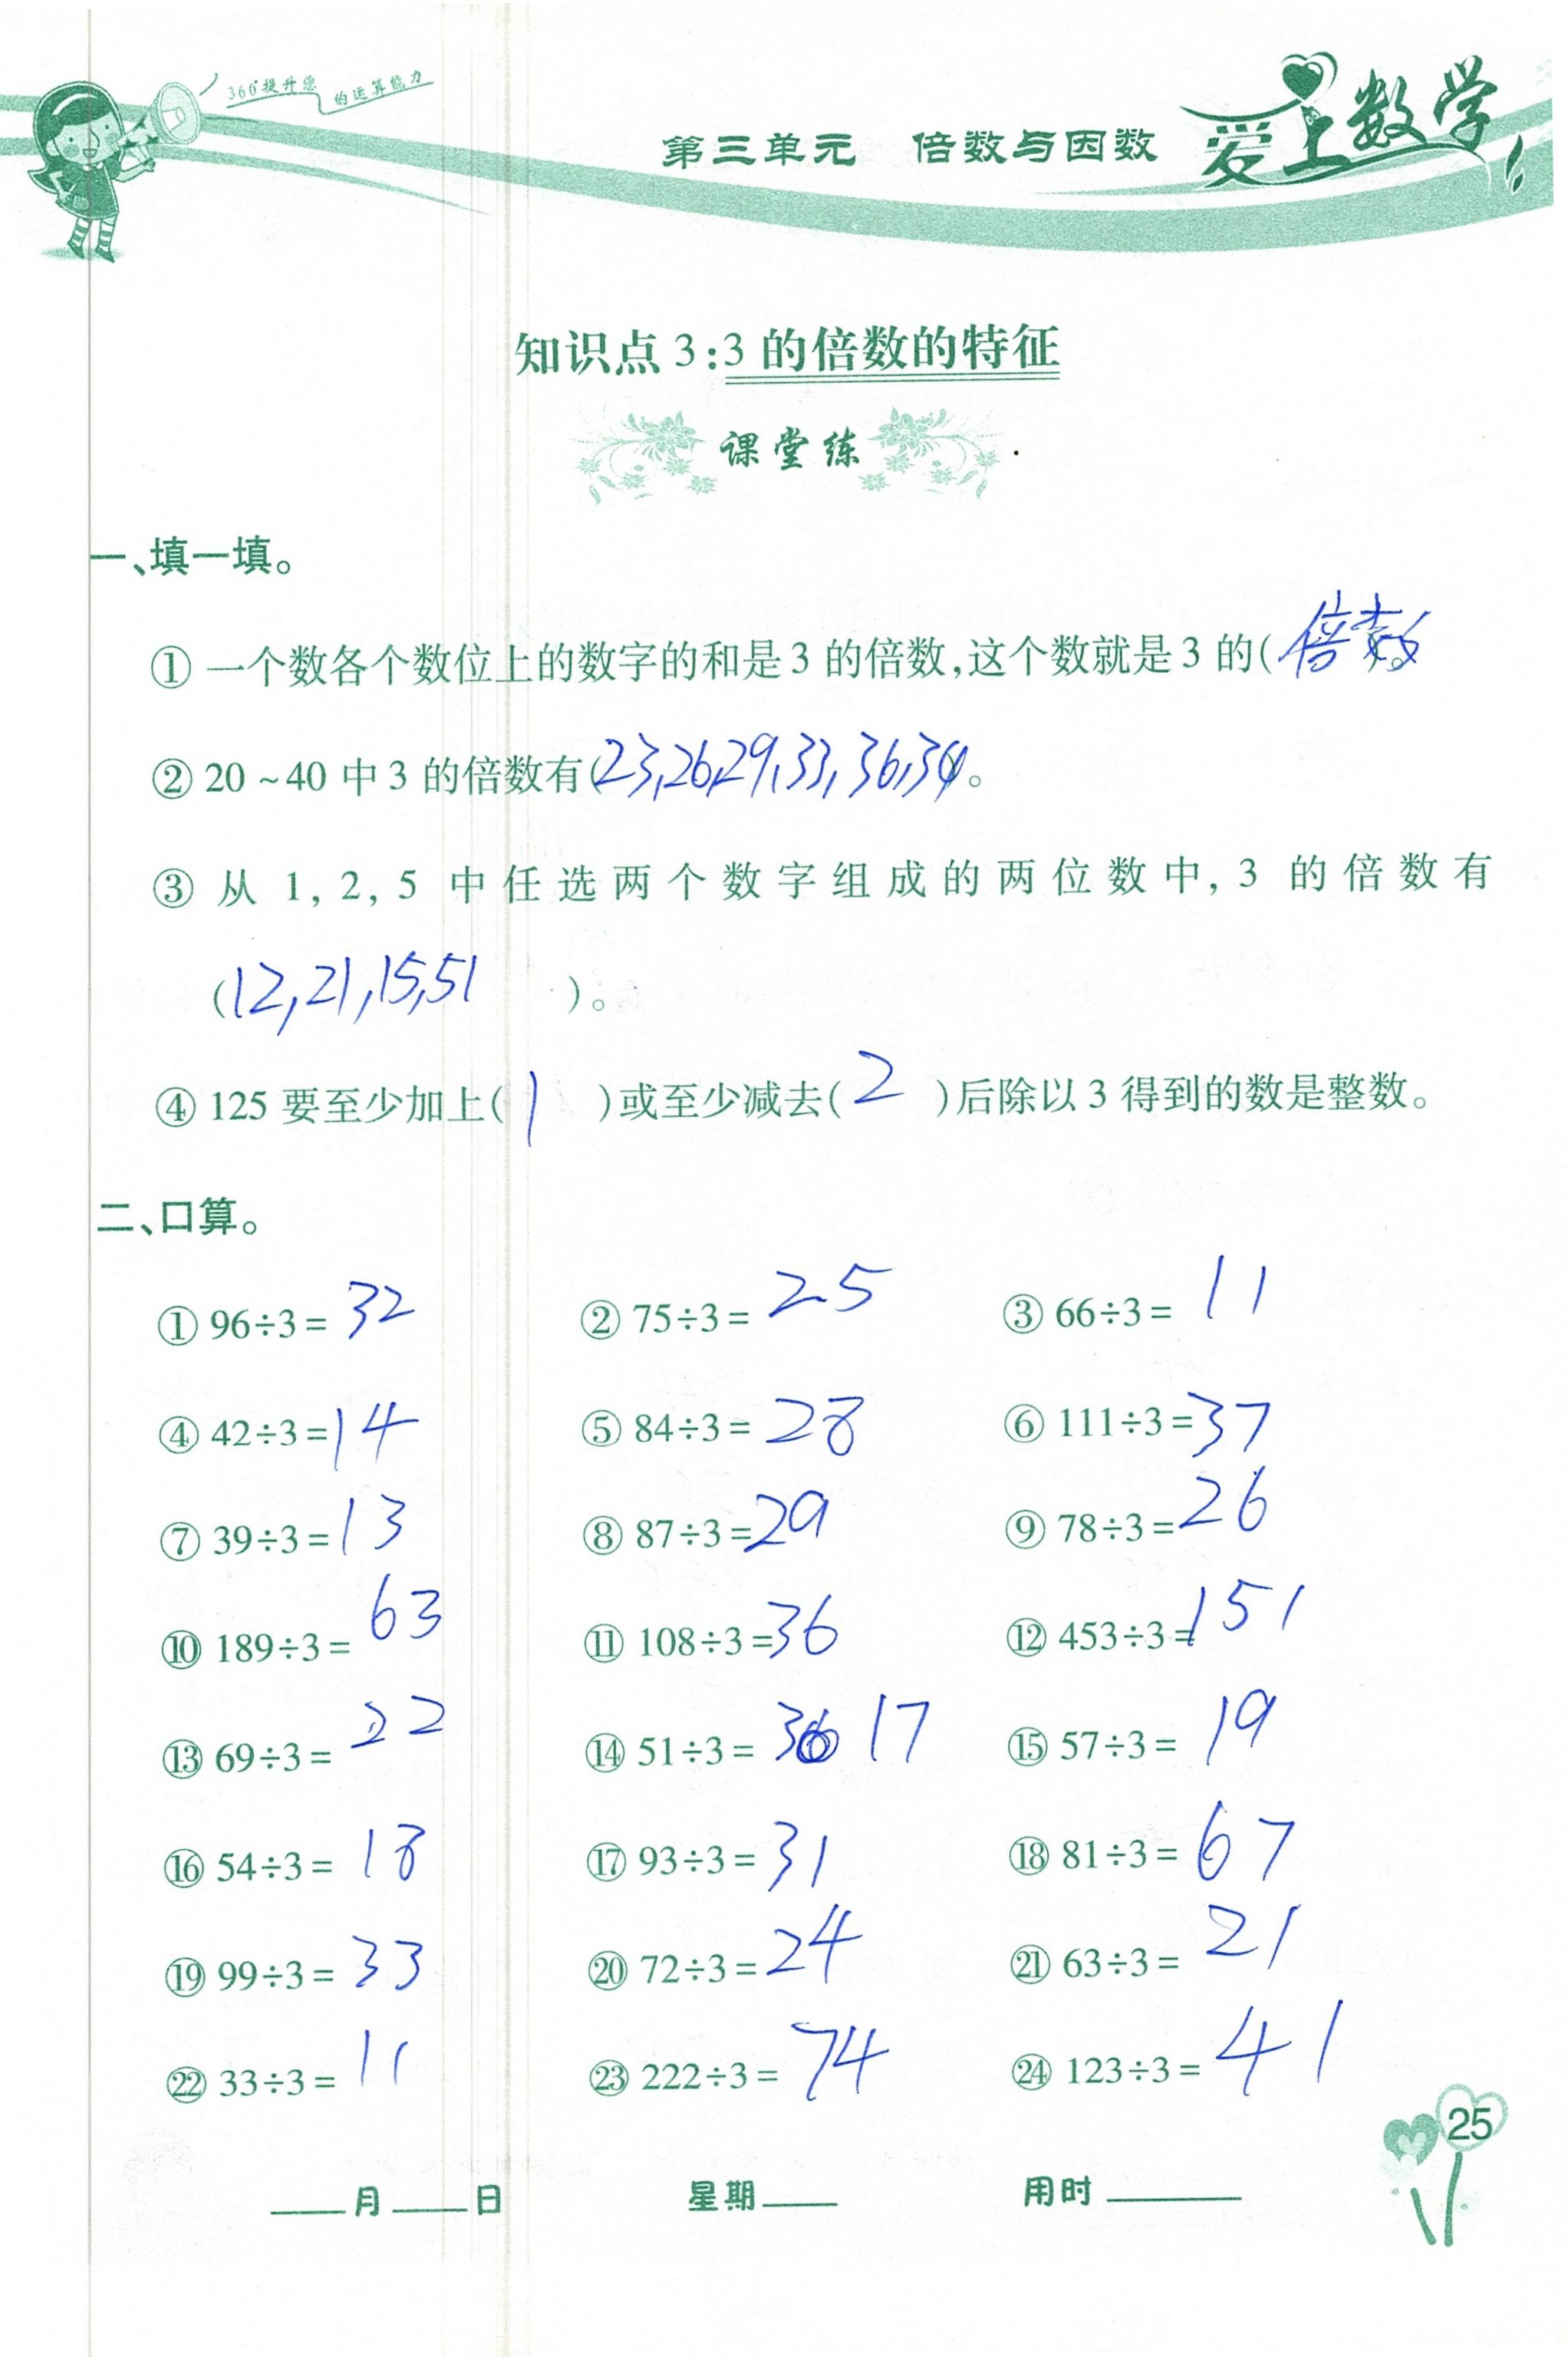 360°提升您的运算能力
第三单元 倍数与因数 爱上数学
知识点3:3的倍数的特征
课堂练
一、填一填。
① 一个数各个数位上的数字的和是3的倍数,这个数就是3的(倍数)。
② 20~40中3的倍数有(23,26,29,33,36,39)。
③ 从 1, 2, 5 中任选两个数字组成的两位数中, 3 的倍数有
(12,21,15,51 )。
④ 125要至少加上( 1 )或至少减去( 2 )后除以3得到的数是整数。
二、口算。
① 96÷3= 32 ② 75÷3= 25 ③ 66÷3= 11
④ 42÷3= 14 ⑤ 84÷3= 28 ⑥ 111÷3= 37
⑦ 39÷3= 13 ⑧ 87÷3= 29 ⑨ 78÷3= 26
⑩ 189÷3= 63 ⑪ 108÷3= 36 ⑫ 453÷3= 151
⑬ 69÷3= 22 ⑭ 51÷3= 17 ⑮ 57÷3= 19
⑯ 54÷3= 18 ⑰ 93÷3= 31 ⑱ 81÷3= 67
⑲ 99÷3= 33 ⑳ 72÷3= 24 ㉑ 63÷3= 21
㉒ 33÷3= 11 ㉓ 222÷3= 74 ㉔ 123÷3= 41
25
____月____日 星期____ 用时____